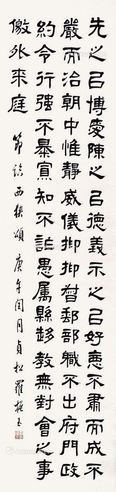 先之以博愛陳之以德義示之以好惡不肅而成不
嚴而治朝中惟靜威儀抑抑督郵部職不出府門政
約令行強不暴寡知不詐愚屬縣趍教無對會之事
儌外來庭
節臨西狹頌 庚午閏月貞松羅振玉